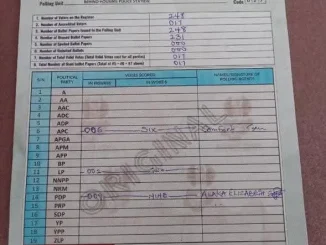 Polling Unit BEHIND HOUSING POLICE STATION Code
1. Number of Voters on the Register 248
2. Number of Accredited Voters 017
3. Number of Ballot Papers Issued to the Polling Unit 248
4. Number of Unused Ballot Papers 231
5. Number of Spoiled Ballot Papers 000
6. Number of Rejected Ballots 000
7. Number of Total Valid Votes (Total Valid Votes cast for all parties) 017
8. Total Number of Used Ballot Papers (Total of #5 + #6 + #7 above) 017
S/N POLITICAL PARTY VOTES SCORED NAME/SIGNATURE OF POLLING AGENTS
IN FIGURES IN WORDS
1 A
2 AA
3 AAC
4 ADC
5 ADP
6 APC 006 SIX
7 APGA
8 APM
9 APP
10 BP
11 LP 002
12 NNPP
13 NRM
14 PDP 009 NINE ELIZABETH
15 PRP
16 SDP
17 YP
18 YPP
ZLP
ORIGINAL